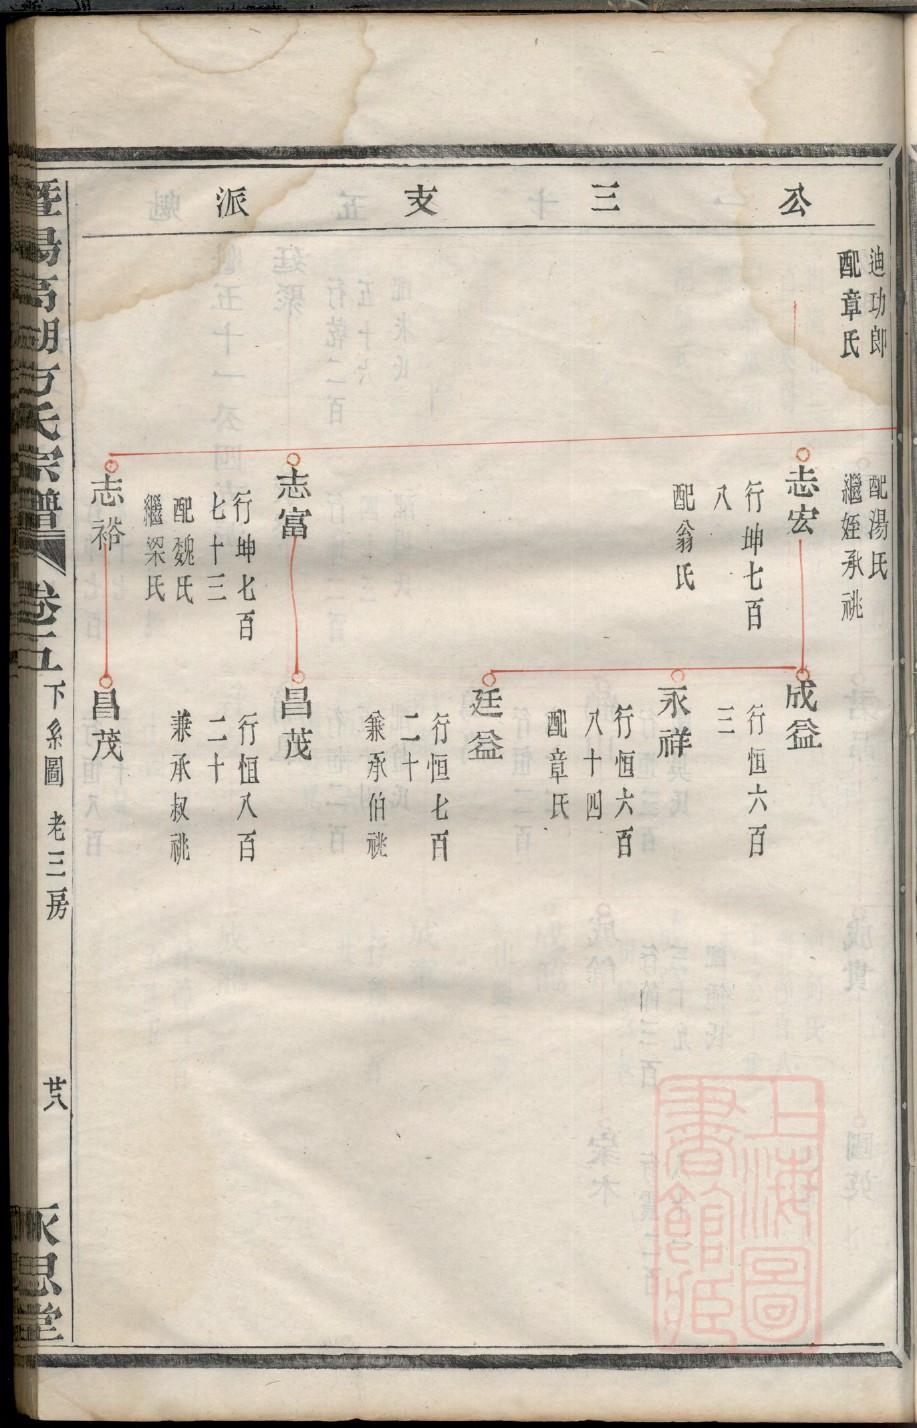 公三支派
迪功郎
配章氏
配湯氏
繼姪承祧
志宏
行坤七百
八
配翁氏
成益
行恒六百
三
永祥
行恒六百
八十四
配章氏
廷益
行恒七百
二十
兼承伯祧
志富
行坤七百
七十三
配魏氏
繼梁氏
昌茂
行恒八百
二十
兼承叔祧
志裕
昌茂
暨陽高湖方氏宗譜
卷二五
下系圖 老三房
廿八
永思堂
上海圖
書館藏